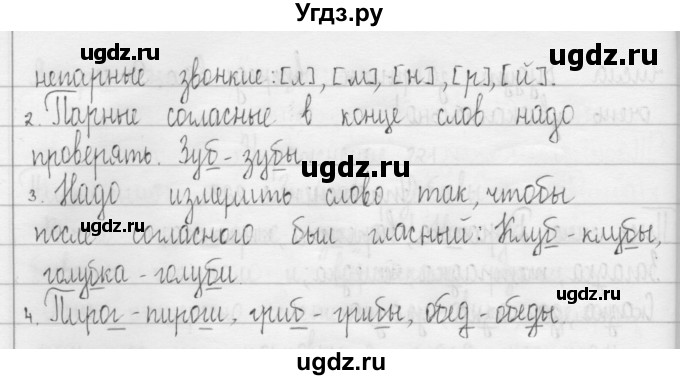 Угдз.ру
непарные звонкие: [л], [м], [н], [р], [й].
2. Парные согласные в конце слов надо
проверять. Зуб - зубы
3. Надо измерить слово так, чтобы
после согласного был гласный: Клуб клубы,
голубка - голуби.
4. Пирог - пироги, гриб - грибы, обед - обеды
ugdz.ru
ugdz.ru
ugdz.ru
ugdz.ru
ugdz.ru
ugdz.ru
ugdz.ru
ugdz.ru
ugdz.ru